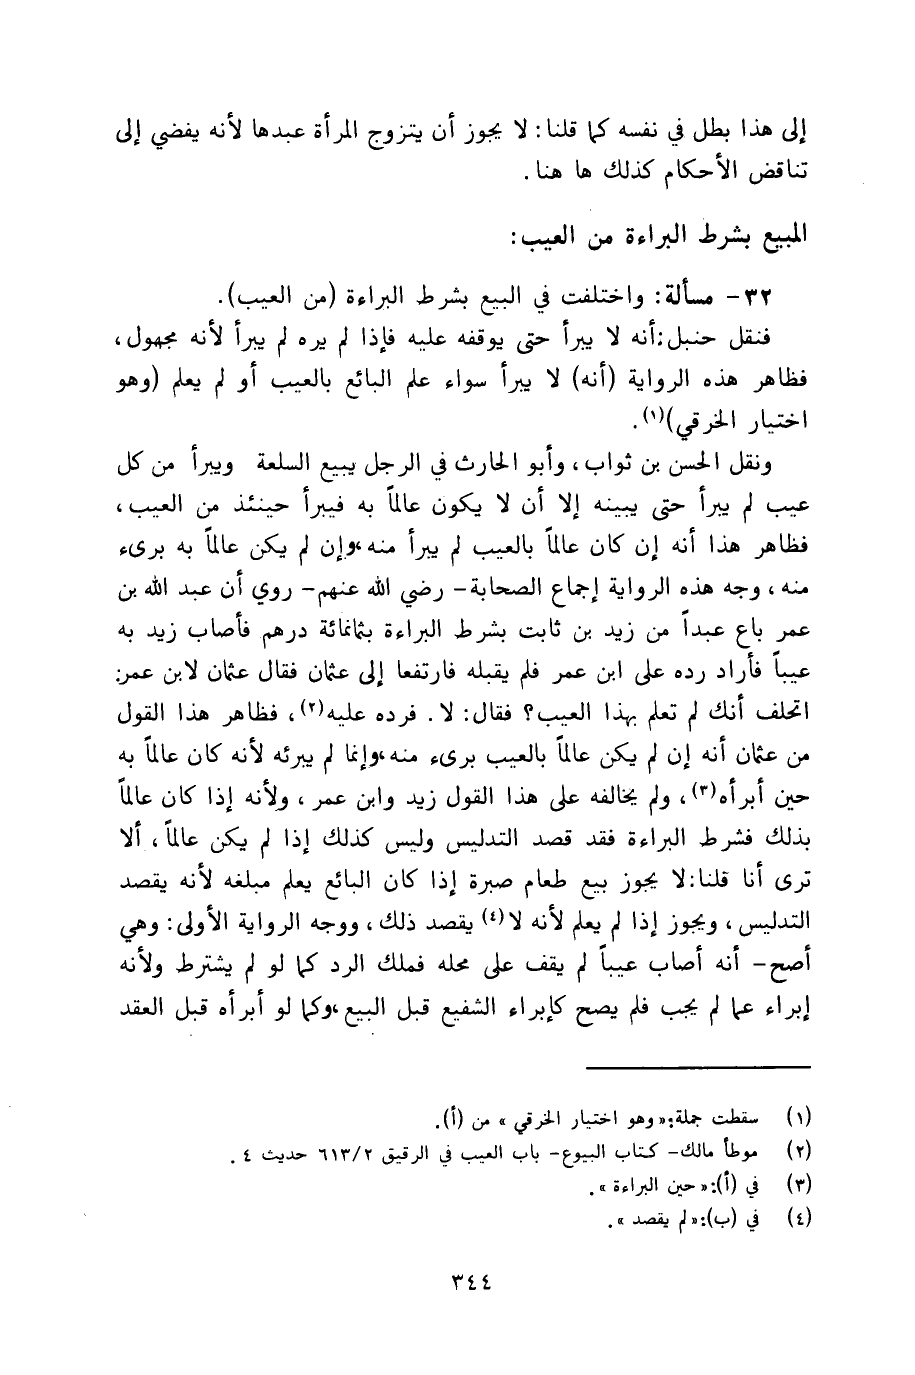 إلى هذا بطل في نفسه كما قلنا: لا يجوز أن يتزوج المرأة عبدها لأنه يفضي إلى
تناقض الأحكام كذلك ها هنا.
المبيع بشرط البراءة من العيب:
٣٢- مسألة: واختلفت في البيع بشرط البراءة (من العيب).
فنقل حنبل: أنه لا يبرأ حتى يوقفه عليه فإذا لم يره لم يبرأ لأنه مجهول،
فظاهر هذه الرواية (أنه) لا يبرأ سواء علم البائع بالعيب أو لم يعلم (وهو
اختيار الخرقي)(١).
ونقل الحسن بن ثواب، وأبو الحارث في الرجل يبيع السلعة ويبرأ من كل
عيب لم يبرأ حتى يبينه إلا أن لا يكون عالماً به فيبرأ حينئذ من العيب،
فظاهر هذا أنه إن كان عالماً بالعيب لم يبرأ منه، وإن لم يكن عالماً به برىء
منه، وجه هذه الرواية إجماع الصحابة- رضي الله عنهم- روي أن عبد الله بن
عمر باع عبداً من زيد بن ثابت بشرط البراءة بثمانمائة درهم فأصاب زيد به
عيباً فأراد رده على ابن عمر فلم يقبله فارتفعا إلى عثمان فقال عثمان لابن عمر:
اتحلف أنك لم تعلم بهذا العيب؟ فقال: لا. فرده عليه(٢)، فظاهر هذا القول
من عثمان أنه إن لم يكن عالماً بالعيب برىء منه، وإنما لم يبرئه لأنه كان عالماً به
حين أبرأه(٣)، ولم يخالفه على هذا القول زيد وابن عمر، ولأنه إذا كان عالماً
بذلك فشرط البراءة فقد قصد التدليس وليس كذلك إذا لم يكن عالماً، ألا
ترى أنا قلنا: لا يجوز بيع طعام صبرة إذا كان البائع يعلم مبلغه لأنه يقصد
التدليس، ويجوز إذا لم يعلم لأنه لا(٤) يقصد ذلك، ووجه الرواية الأولى: وهي
أصح- أنه أصاب عيباً لم يقف على محله فملك الرد كما لو لم يشترط ولأنه
إبراء عما لم يجب فلم يصح كإبراء الشفيع قبل البيع، وكما لو أبرأه قبل العقد
(١) سقطت جملة: «وهو اختيار الخرقي» من (أ).
(٢) موطأ مالك- كتاب البيوع- باب العيب في الرقيق ٦١٣/٢ حديث ٤.
(٣) في (أ): «حين البراءة».
(٤) في (ب): «لم يقصد».
٣٤٤